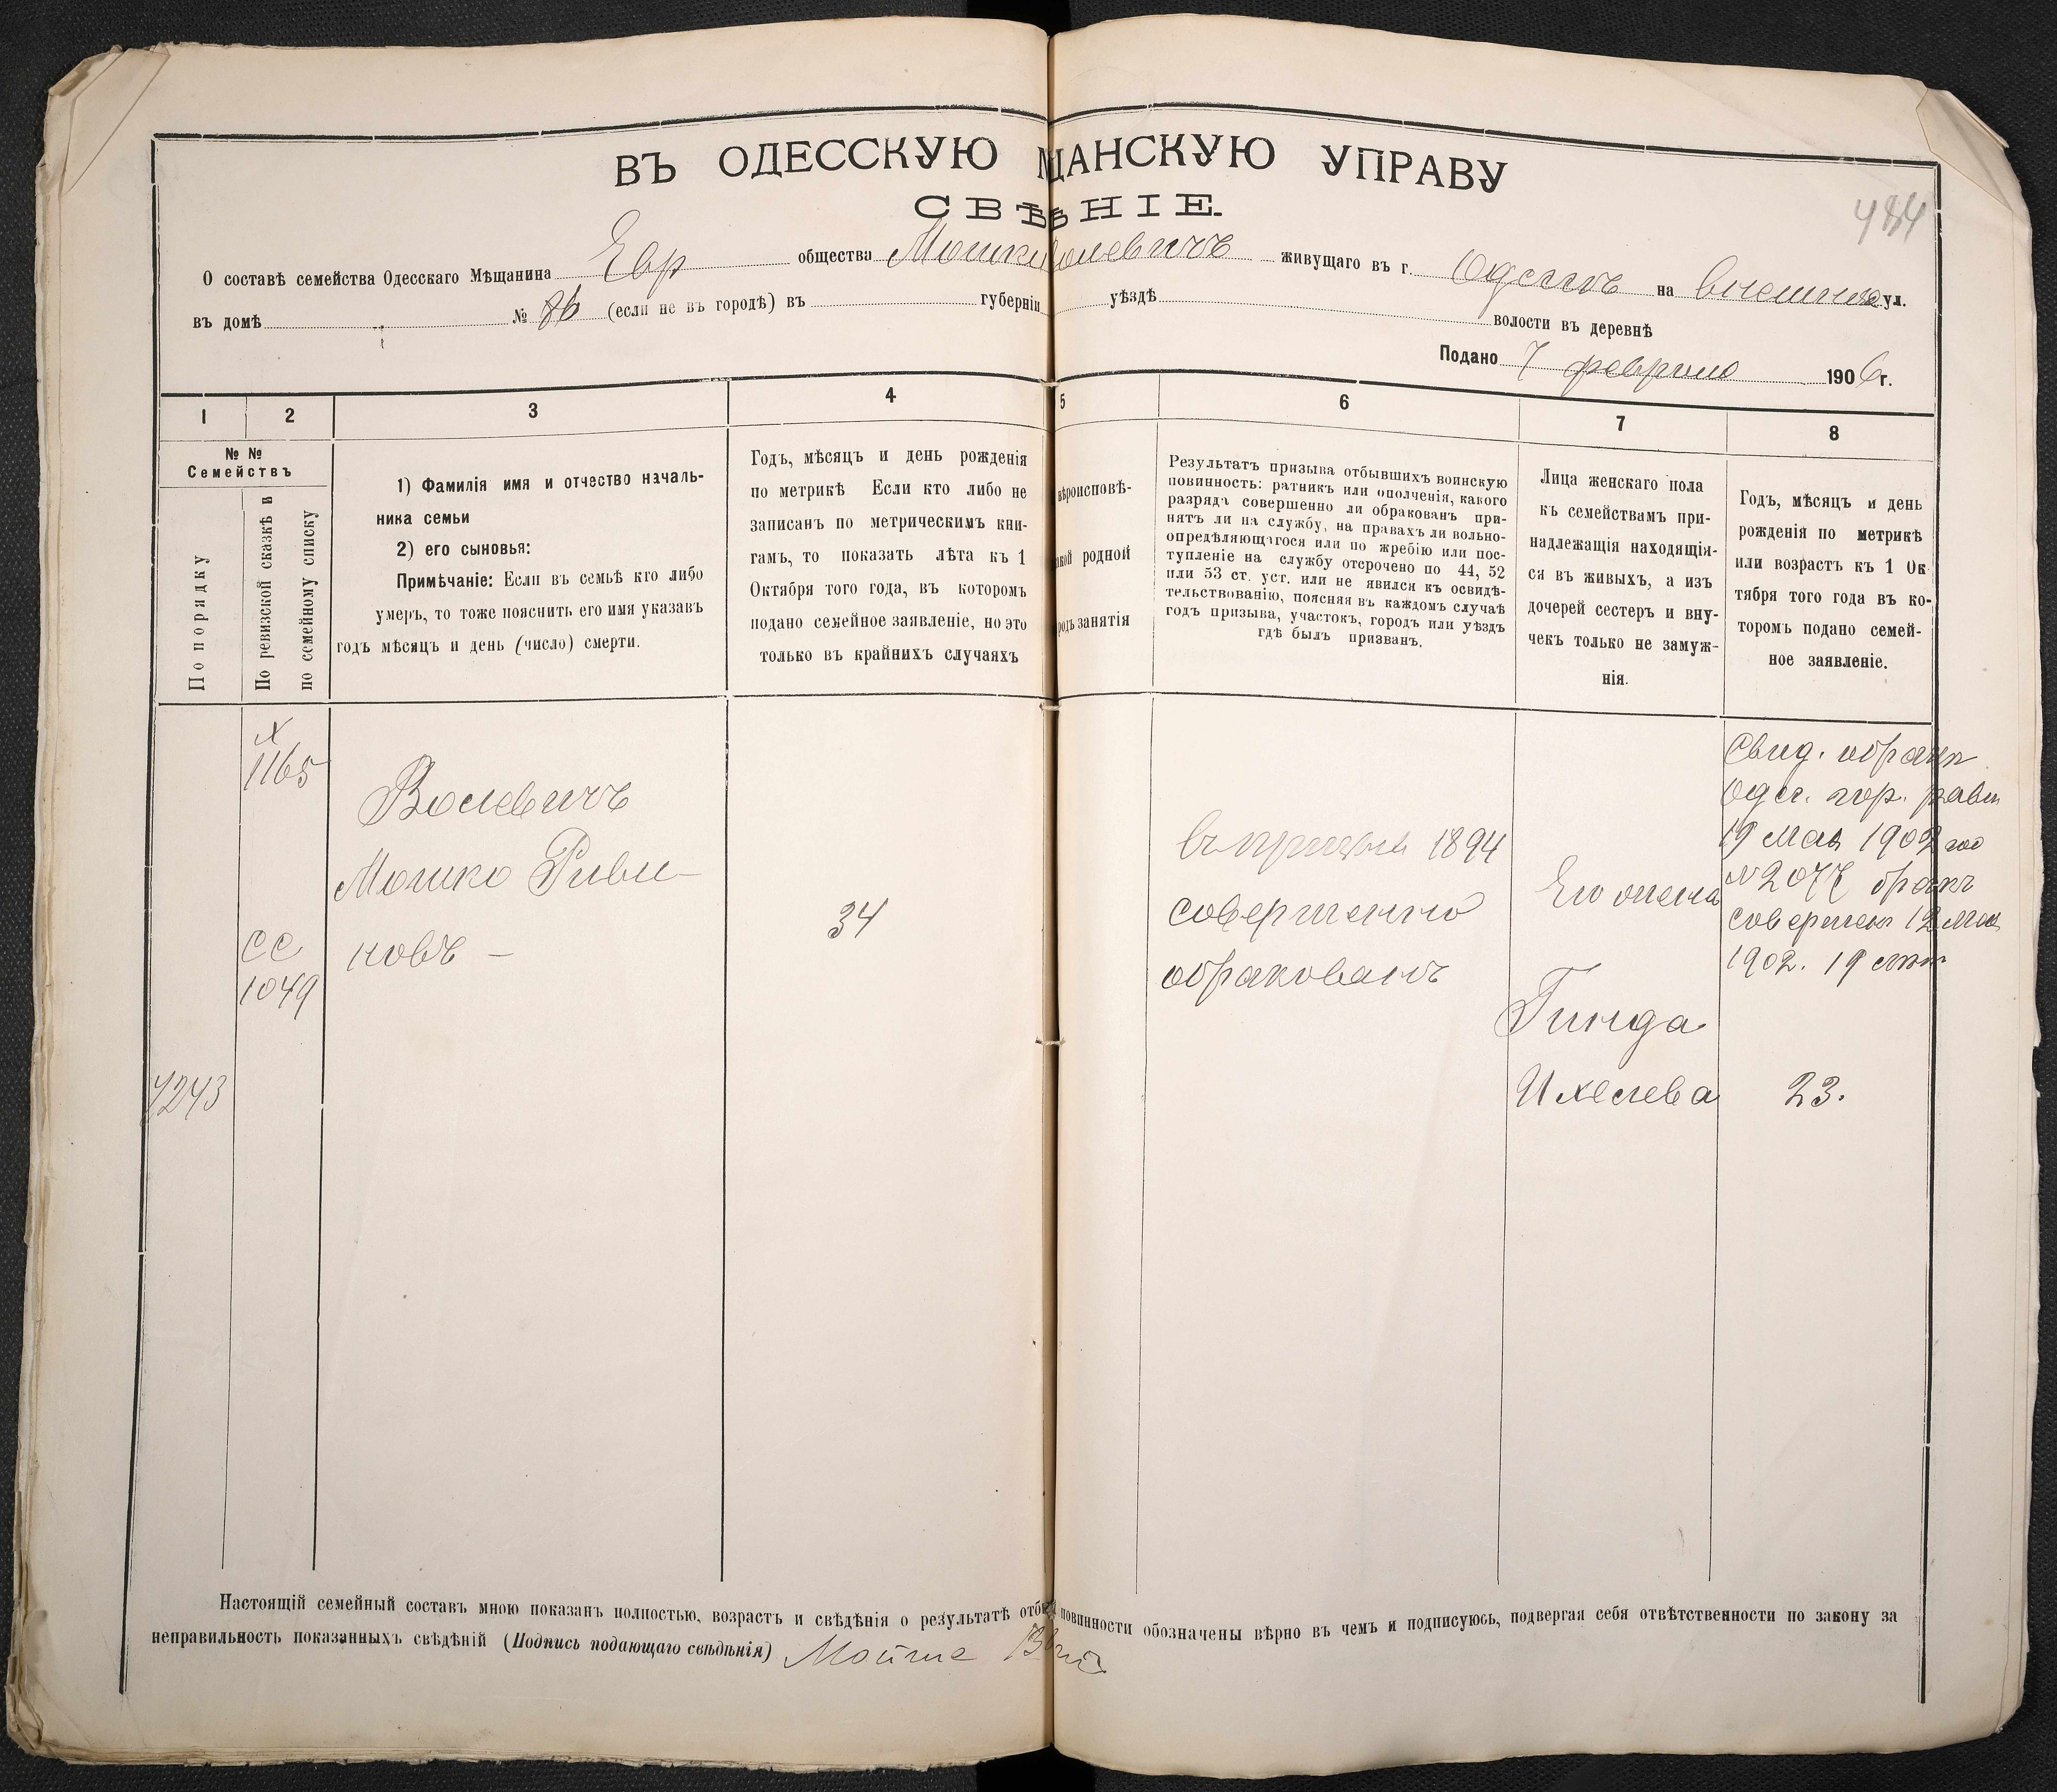 484
ВЪ ОДЕССКУЮ М ЩАНСКУЮ УПРАВУ
СВѢ НІЕ.
О составѣ семейства Одесскаго Мѣщанина Евр общества Мошк олевичъ живущаго въ г. Одессѣ на ул.
въ домѣ № (если не въ городѣ) въ губерніи уѣздѣ волости въ деревнѣ
Подано 7 февраля 1906 г.
1 2 3 4 5 6 7 8
№ №
Семействъ
По порядку
По ревизской сказкѣ и
по семейному списку
1) Фамилія имя и отчество началь-
ника семьи
2) его сыновья:
Примѣчаніе: Если въ семьѣ кто либо
умеръ, то тоже пояснить его имя указавъ
годъ мѣсяцъ и день (число) смерти.
Годъ, мѣсяцъ и день рожденія
по метрикѣ Если кто либо не
записанъ по метрическимъ кни-
гамъ, то показать лѣта къ 1
Октября того года, въ которомъ
подано семейное заявленіе, но это
только въ крайнихъ случаяхъ
ѣроисповѣ-
акой родной
родъ занятія
Результатъ призыва отбывшихъ воинскую
повинность: ратникъ или ополченія, какого
разряда совершенно ли обракованъ при-
нятъ ли на службу, на правахъ ли вольно-
опредѣляющагося или по жребію или пос-
тупленіе на службу отсрочено по 44, 52
или 53 ст. уст. или не явился къ освидѣ-
тельствованію, поясняя въ каждомъ случаѣ
годъ призыва, участокъ, городъ или уѣздъ
гдѣ былъ призванъ.
Лица женскаго пола
къ семействамъ при-
надлежащія находящія-
ся въ живыхъ, а изъ
дочерей сестеръ и вну-
чекъ только не замуж-
нія.
Годъ, мѣсяцъ и день
рожденія по метрикѣ
или возрастъ къ 1 Ок-
тября того года въ ко-
торомъ подано семей-
ное заявленіе.
1165
Волевичъ
Мошко Риви-
новъ –
СС
1049
4243
34
въ призывѣ 1894
совершенно
обракованъ
Его жена
Гинда
Ихелева
23.
Свид. о бракѣ
Одес. гор. равв
19 Мая 1902 года
№ 2077 бракъ
совершенъ 12 Мая
1902.
Настоящій семейный составъ мною показанъ полностью, возрастъ и свѣдѣнія о результатѣ отб повинности обозначены вѣрно въ чемъ и подписуюсь, подвергая себя отвѣтственности по закону за
неправильность показанныхъ свѣдѣній (Подпись подающаго свѣдѣнія) Мойше